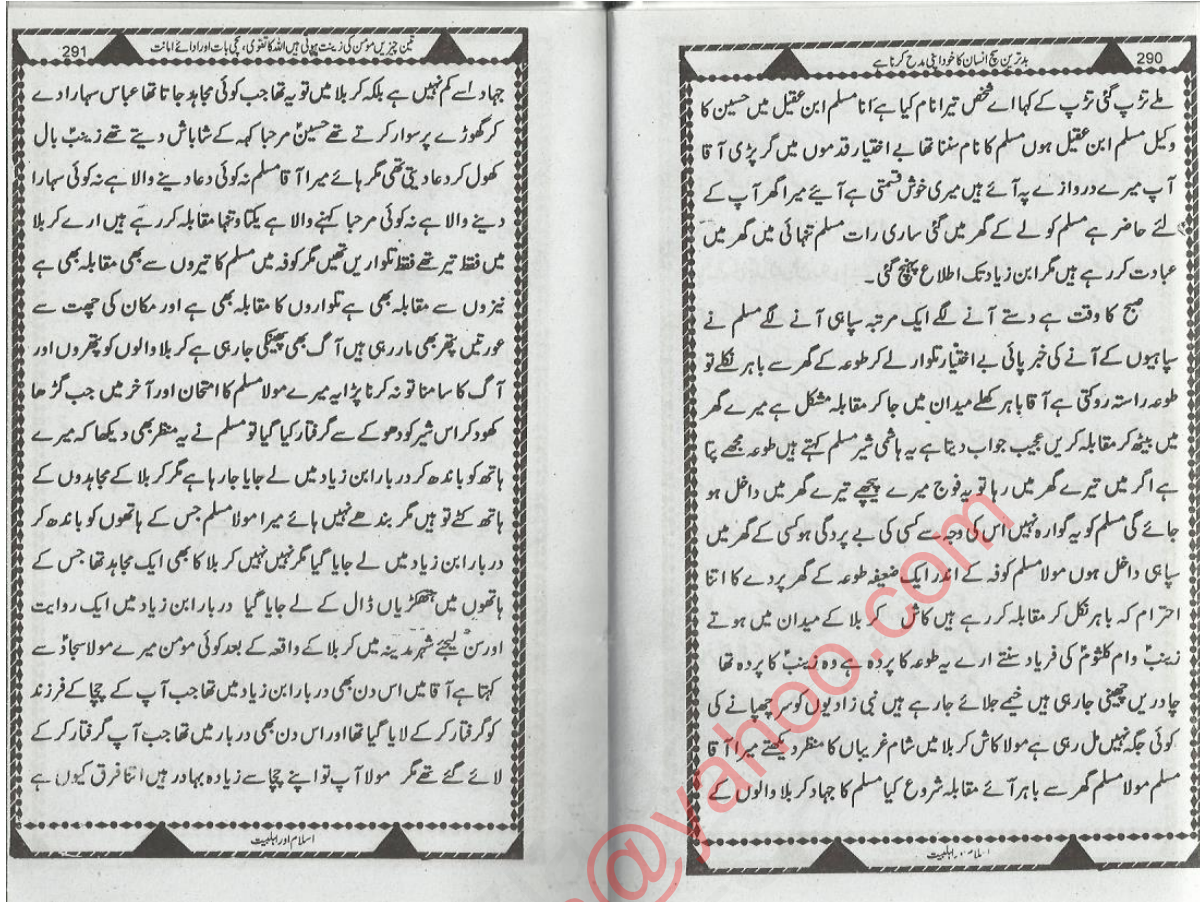 290
بدترین سچ انسان کا خود اپنی مدح کرنا ہے
ملے تڑپ گئی تڑپ کے کہا اے شخص تیرا نام کیا ہے اَنا مسلم ابن عقیل میں حسین کا
وکیل مسلم ابن عقیل ہوں مسلم کا نام سننا تھا بے اختیار قدموں میں گر پڑی آقا
آپ میرے دروازے پہ آئے ہیں میری خوش قسمتی ہے آیئے میرا گھر آپ کے
لئے حاضر ہے مسلم کو لے کے گھر میں گئی ساری رات مسلم تنہائی میں گھر میں
عبادت کر رہے ہیں مگر ابن زیاد تک اطلاع پہنچ گئی۔
صبح کا وقت ہے دستے آنے لگے ایک مرتبہ سپاہی آنے لگے مسلم نے
سپاہیوں کے آنے کی خبر پائی بے اختیار تلوار لے کر طوعہ کے گھر سے باہر نکلے تو
طوعہ راستہ روکتی ہے آقا باہر کھلے میدان میں جا کر مقابلہ مشکل ہے میرے گھر
میں بیٹھ کر مقابلہ کریں عجیب جواب دیتا ہے یہ ہاشمی شیر مسلم کہتے ہیں طوعہ مجھے پتا
ہے اگر میں تیرے گھر میں رہا تو یہ فوج میرے پیچھے تیرے گھر میں داخل ہو
جائے گی مسلم کو یہ گوارہ نہیں اس کی وجہ سے کسی کی بے پردگی ہو کسی کے گھر میں
سپاہی داخل ہوں مولا مسلم کوفہ کے اندر ایک ضعیفہ طوعہ کے گھر پردے کا اتنا
احترام کہ باہر نکل کر مقابلہ کر رہے ہیں کاش کربلا کے میدان میں ہوتے
زینبؑ و ام کلثومؑ کی فریاد سنتے ارے یہ طوعہ کا پردہ ہے وہ زینبؑ کا پردہ تھا
چادریں چھینی جا رہی ہیں خیمے جلائے جا رہے ہیں نبی زادیوں کو سر چھپانے کی
کوئی جگہ نہیں مل رہی ہے مولا کاش کربلا میں شام غریباں کا منظر دیکھتے میرا آقا
مسلم مولا مسلم گھر سے باہر آئے مقابلہ شروع کیا مسلم کا جہاد کربلا والوں کے
اسلام اور اہلبیت
291
تین چیزیں مومن کی زینت ہوتی ہیں اللہ کا تقویٰ، سچی بات اور ادائے امانت
جہاد سے کم نہیں ہے بلکہ کربلا میں تو یہ تھا جب کوئی مجاہد جاتا تھا عباس سہارا دے
کر گھوڑے پر سوار کرتے تھے حسینؑ مرحبا کہہ کے شاباش دیتے تھے زینبؑ بال
کھول کر دعا دیتی تھی مگر ہائے میرا آقا مسلم نہ کوئی دعا دینے والا ہے نہ کوئی سہارا
دینے والا ہے نہ کوئی مرحبا کہنے والا ہے یکتا و تنہا مقابلہ کر رہے ہیں ارے کربلا
میں فقط تیر تھے فقط تلواریں تھیں مگر کوفہ میں مسلم کا تیروں سے بھی مقابلہ بھی ہے
نیزوں سے مقابلہ بھی ہے تلواروں کا مقابلہ بھی ہے اور مکان کی چھت سے
عورتیں پتھر بھی مار رہی ہیں آگ بھی پھینکی جا رہی ہے کربلا والوں کو پتھروں اور
آگ کا سامنا تو نہ کرنا پڑا یہ میرے مولا مسلم کا امتحان اور آخر میں جب گڑھا
کھود کر اس شیر کو دھوکے سے گرفتار کیا گیا تو مسلم نے یہ منظر بھی دیکھا کہ میرے
ہاتھ کو باندھ کر دربار ابن زیاد میں لے جایا جا رہا ہے مگر کربلا کے مجاہدوں کے
ہاتھ کٹے تو ہیں مگر بندھے نہیں ہائے میرا مولا مسلم جس کے ہاتھوں کو باندھ کر
دربار ابن زیاد میں لے جایا گیا مگر نہیں نہیں کربلا کا بھی ایک مجاہد تھا جس کے
ہاتھوں میں ہتھکڑیاں ڈال کے لے جایا گیا دربار ابن زیاد میں ایک روایت
اور سن لیجئے شہر مدینہ میں کربلا کے واقعہ کے بعد کوئی مومن میرے مولا سجادؑ سے
کہتا ہے آقا میں اس دن بھی دربار ابن زیاد میں تھا جب آپ کے چچا کے فرزند
کو گرفتار کر کے لایا گیا تھا اور اس دن بھی دربار میں تھا جب آپ گرفتار کر کے
لائے گئے تھے مگر مولا آپ تو اپنے چچا سے زیادہ بہادر ہیں اتنا فرق کیوں ہے
اسلام اور اہلبیت
@yahoo.com